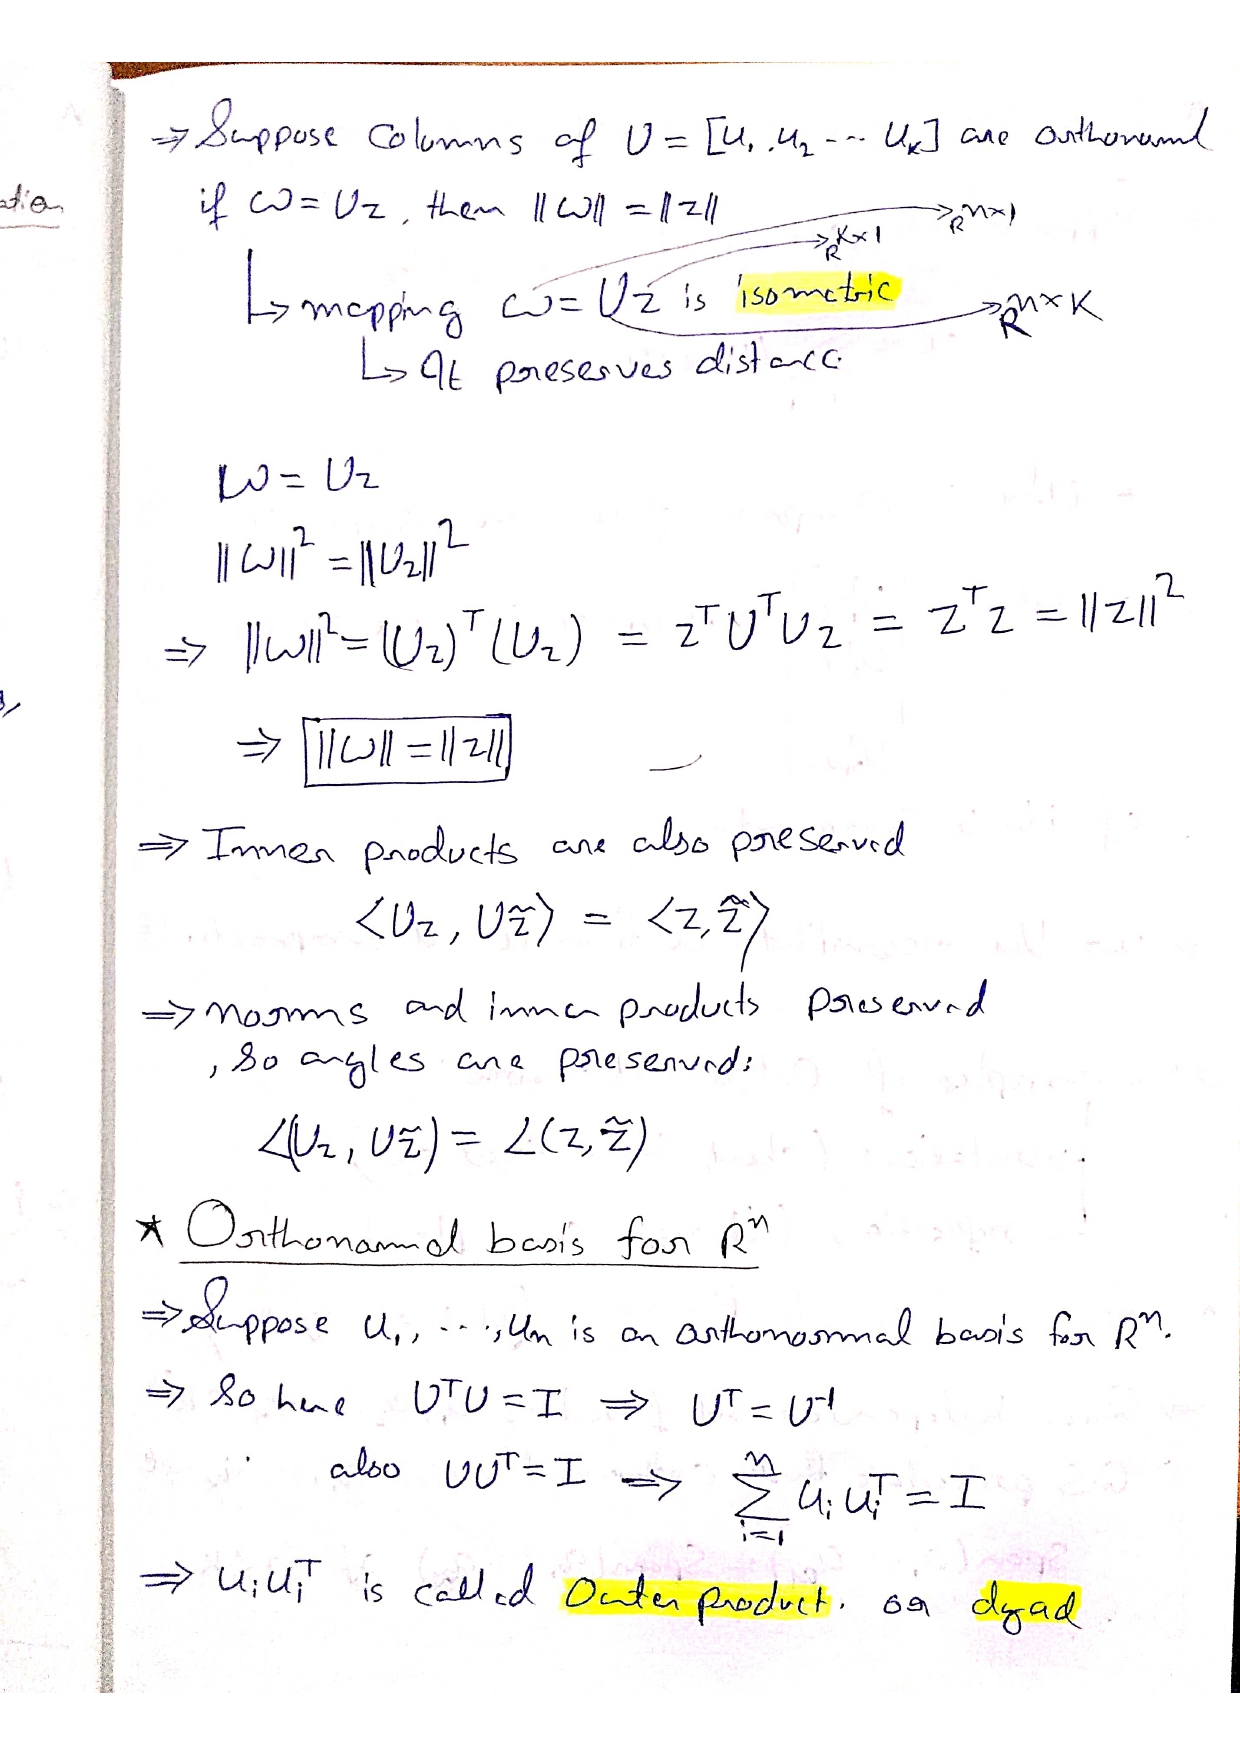 ⇒ Suppose Columns of U = [u₁, u₂ --- uₖ] are orthonormal
if ω = Uz, then ||ω|| = ||z||
R^{n×1}
R^{K×1}
↳ mapping ω = Uz is isometric
R^{n×K}
↳ It preserves distance
ω = Uz
||ω||² = ||Uz||²
⇒ ||ω||² = (Uz)ᵀ(Uz) = zᵀUᵀUz = zᵀz = ||z||²
⇒ ||ω|| = ||z||
⇒ Inner products are also preserved
<Uz, Uz̃> = <z, z̃>
⇒ norms and inner products preserved
, so angles are preserved:
∠(Uz, Uz̃) = ∠(z, z̃)
* Orthonormal basis for Rⁿ
⇒ Suppose u₁, ---, uₙ is an orthonormal basis for Rⁿ.
⇒ So here UᵀU = I ⇒ Uᵀ = U⁻¹
also UUᵀ = I ⇒ ∑_{i=1}^{n} uᵢuᵢᵀ = I
⇒ uᵢuᵢᵀ is called Outer product. or dyad